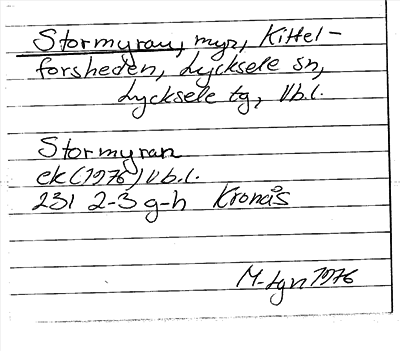 Stormyran, myr, Kittel-
forsheden, Lycksele sn,
Lycksele tg, Vb.l.
Stormyran
ek (1976) Vb.l.
231 2-3 g-h Kronås
M-lgn 1976